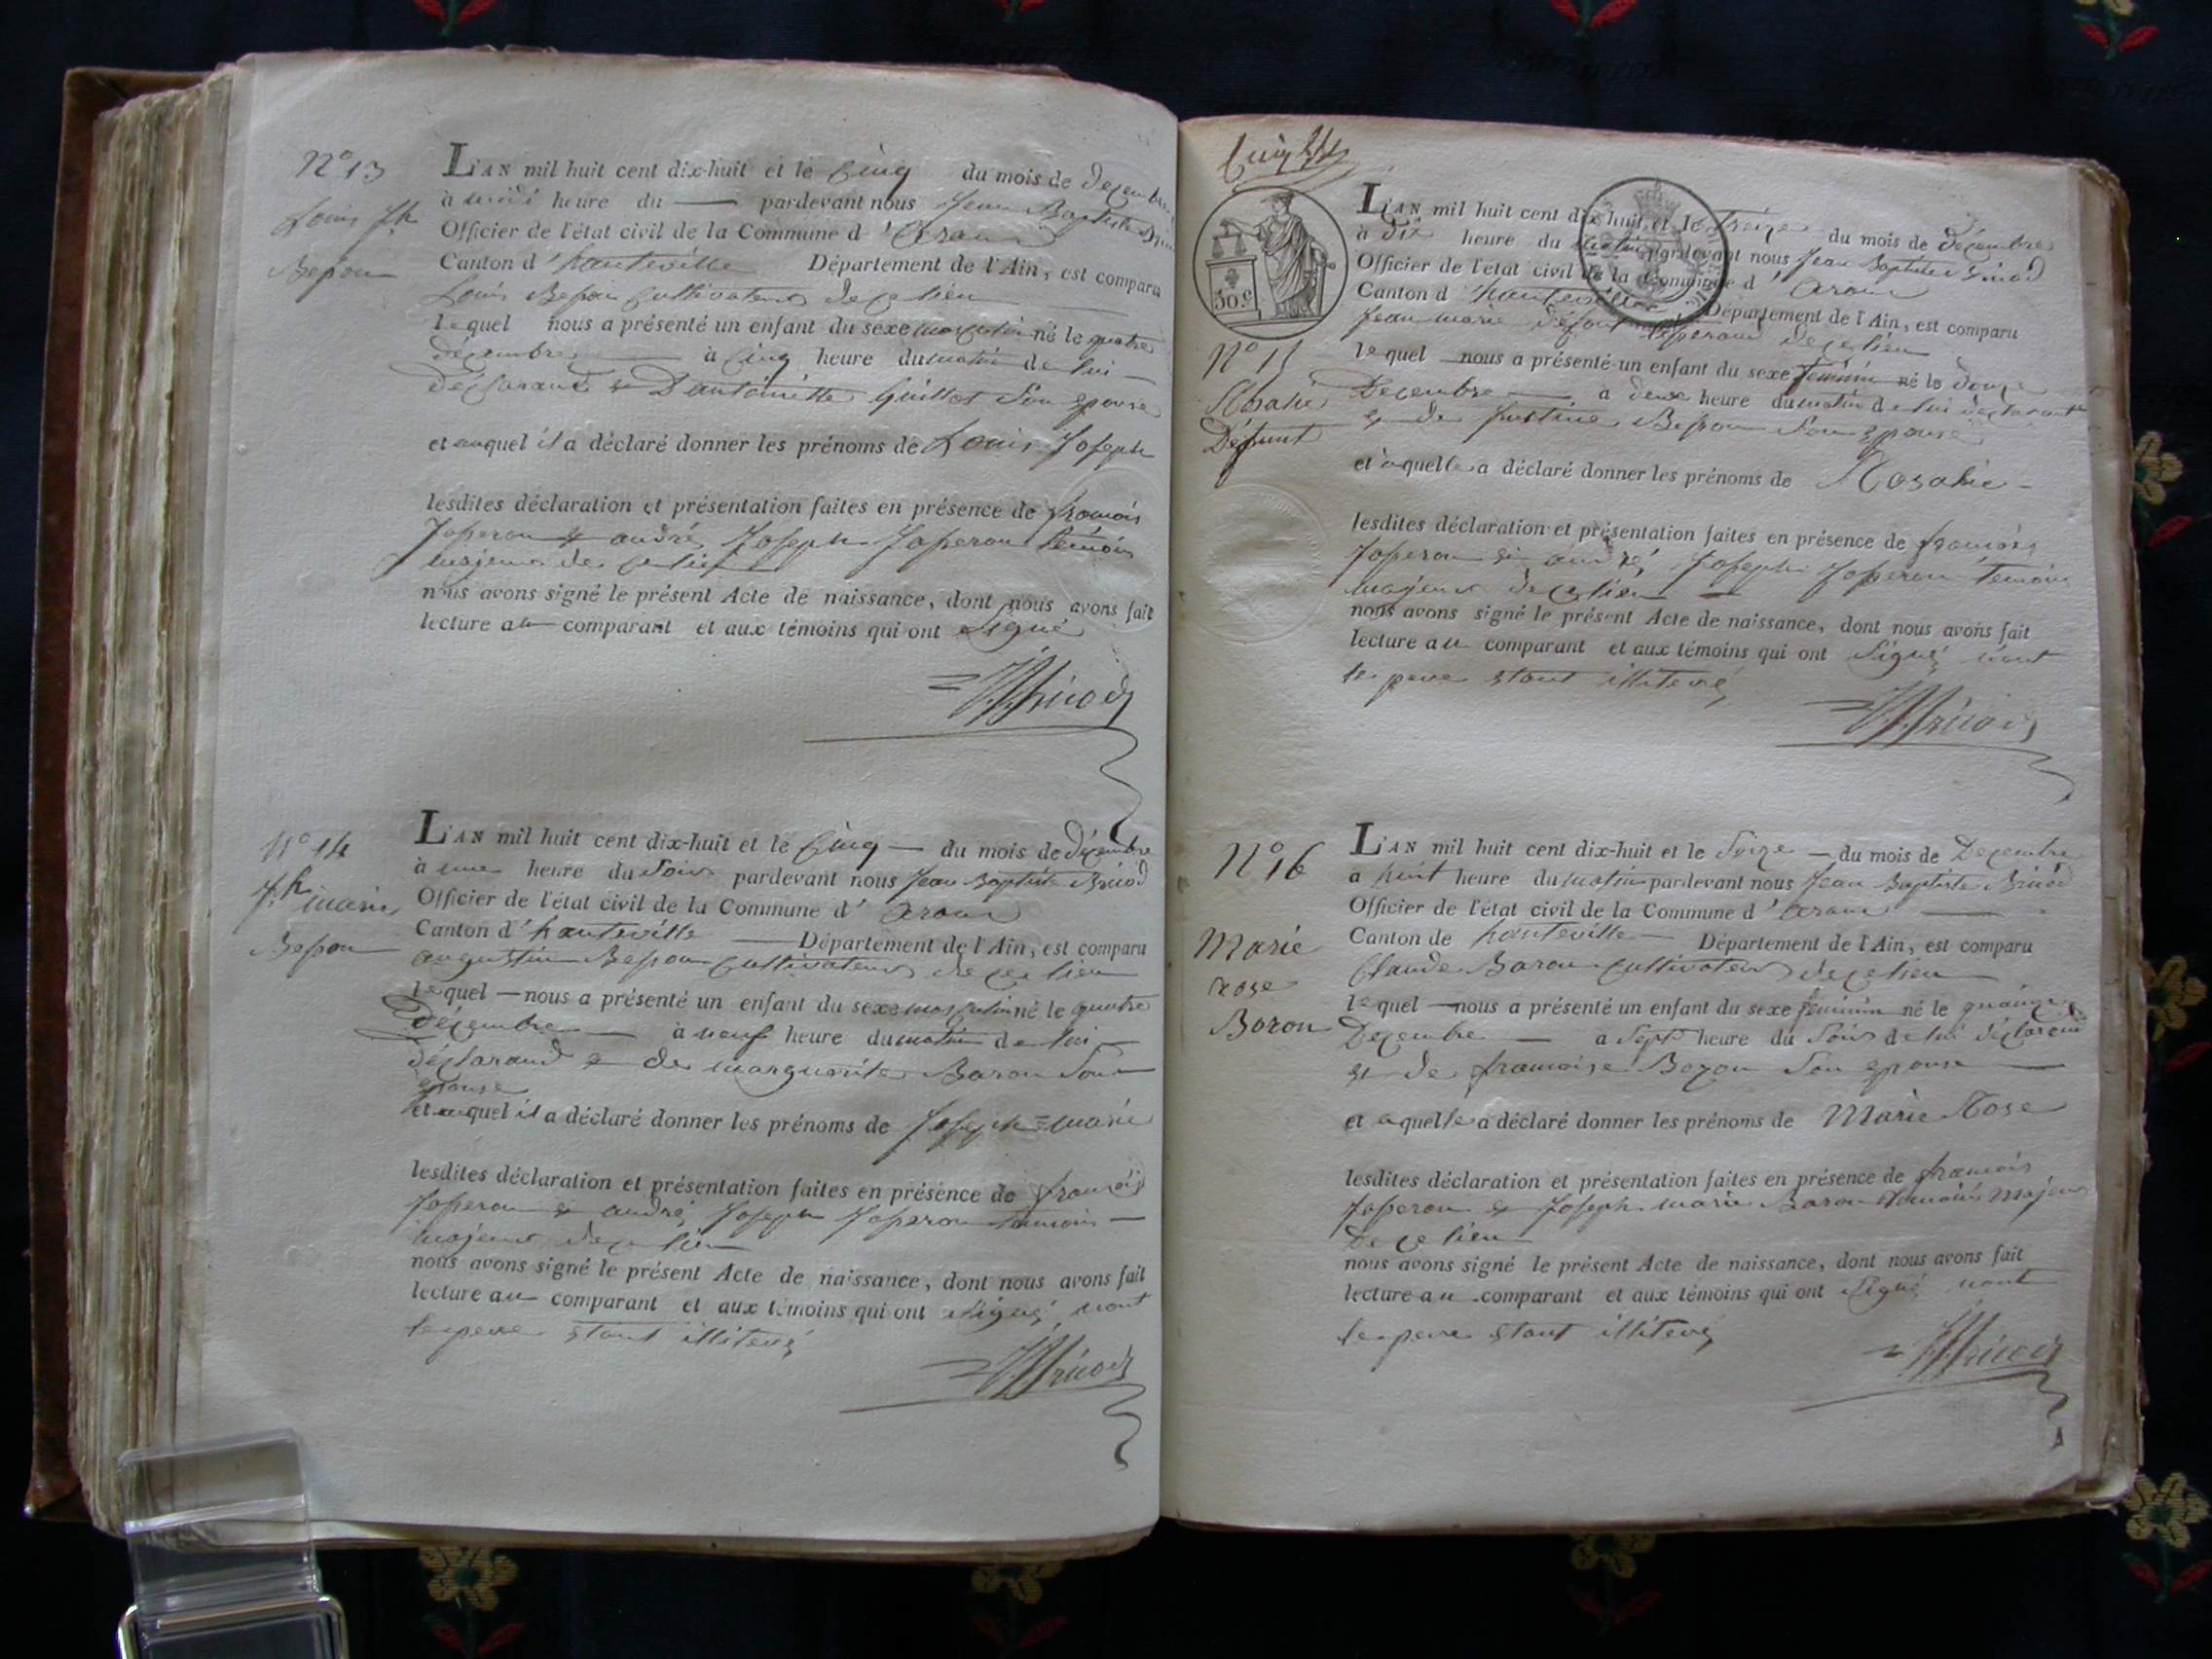 N° 13
Louis Jh
Besson
L'AN mil huit cent dix-huit et le Cinq du mois de décembre
à midi heure du — pardevant nous Jean Baptiste
Officier de l'état civil de la Commune d' Aranc
Canton d' hauteville Département de l'Ain, est comparu
Louis Besson Cultivateur de ce lieu
lequel nous a présenté un enfant du sexe masculin né le quatre
décembre — à Cinq heure du matin de lui
déclarand & D'antoinette Guillot Son epouse
et auquel il a déclaré donner les prénoms de Louis Joseph
lesdites déclaration et présentation faites en présence de francois
Josseron & andré Joseph Josseron temoin
majeur de ce lieu
nous avons signé le présent Acte de naissance, dont nous avons fait
lecture au comparant et aux témoins qui ont Signé
N° 14
Jh marie
Besson
L'AN mil huit cent dix-huit et le Cinq — du mois de décembre
à une heure du Soir pardevant nous Jean Baptiste Brucod
Officier de l'état civil de la Commune d' Aranc
Canton d' hauteville — Département de l'Ain, est comparu
augustin Besson Cultivateur de ce lieu
lequel — nous a présenté un enfant du sexe masculin né le quatre
décembre — à neuf heure du matin de lui
déclarand & de marguerite Baron Son
epouse
et auquel il a déclaré donner les prénoms de Joseph = marie
lesdites déclaration et présentation faites en présence de francois
Josseron & andré Joseph Josseron temoin —
majeur de ce lieu
nous avons signé le présent Acte de naissance, dont nous avons fait
lecture au comparant et aux témoins qui ont signé, nont
le pere etant illiteré
30 c
N° 15
Rosalie
Défunt
L'AN mil huit cent dix huit et le Treize du mois de décembre
à dix heure du matin pardevant nous Jean Baptiste
Officier de l'état civil de la Commune d' Aranc
Canton d' hauteville Département de l'Ain, est comparu
Jean marie défont de ce lieu
lequel nous a présenté un enfant du sexe feminin né le douze
Decembre — à deux heure du matin de lui declarant
& de Justine Besson Son epouse
et aquelle a déclaré donner les prénoms de Rosalie -
lesdites déclaration et présentation faites en présence de francois
Josseron & andré Joseph Josseron temoin
majeur de ce lieu —
nous avons signé le présent Acte de naissance, dont nous avons fait
lecture au comparant et aux témoins qui ont signé nont
le pere etant illiteré
N° 16
Marie
rose
Boron
L'AN mil huit cent dix-huit et le Seize — du mois de Decembre
à huit heure du matin pardevant nous Jean Baptiste
Officier de l'état civil de la Commune d' Aranc —
Canton de hauteville — Département de l'Ain, est comparu
Claude Baron Cultivateur de ce lieu
lequel — nous a présenté un enfant du sexe feminin né le quinze
Decembre — à Sept heure du Soir de lui déclarand
& de francoise Bozon Son epouse —
et aquelle a déclaré donner les prénoms de Marie Rose
lesdites déclaration et présentation faites en présence de francois
Josseron & Joseph marie Baron temoins majeur
De ce lieu
nous avons signé le présent Acte de naissance, dont nous avons fait
lecture au comparant et aux témoins qui ont signé nont
le pere etant illiteré